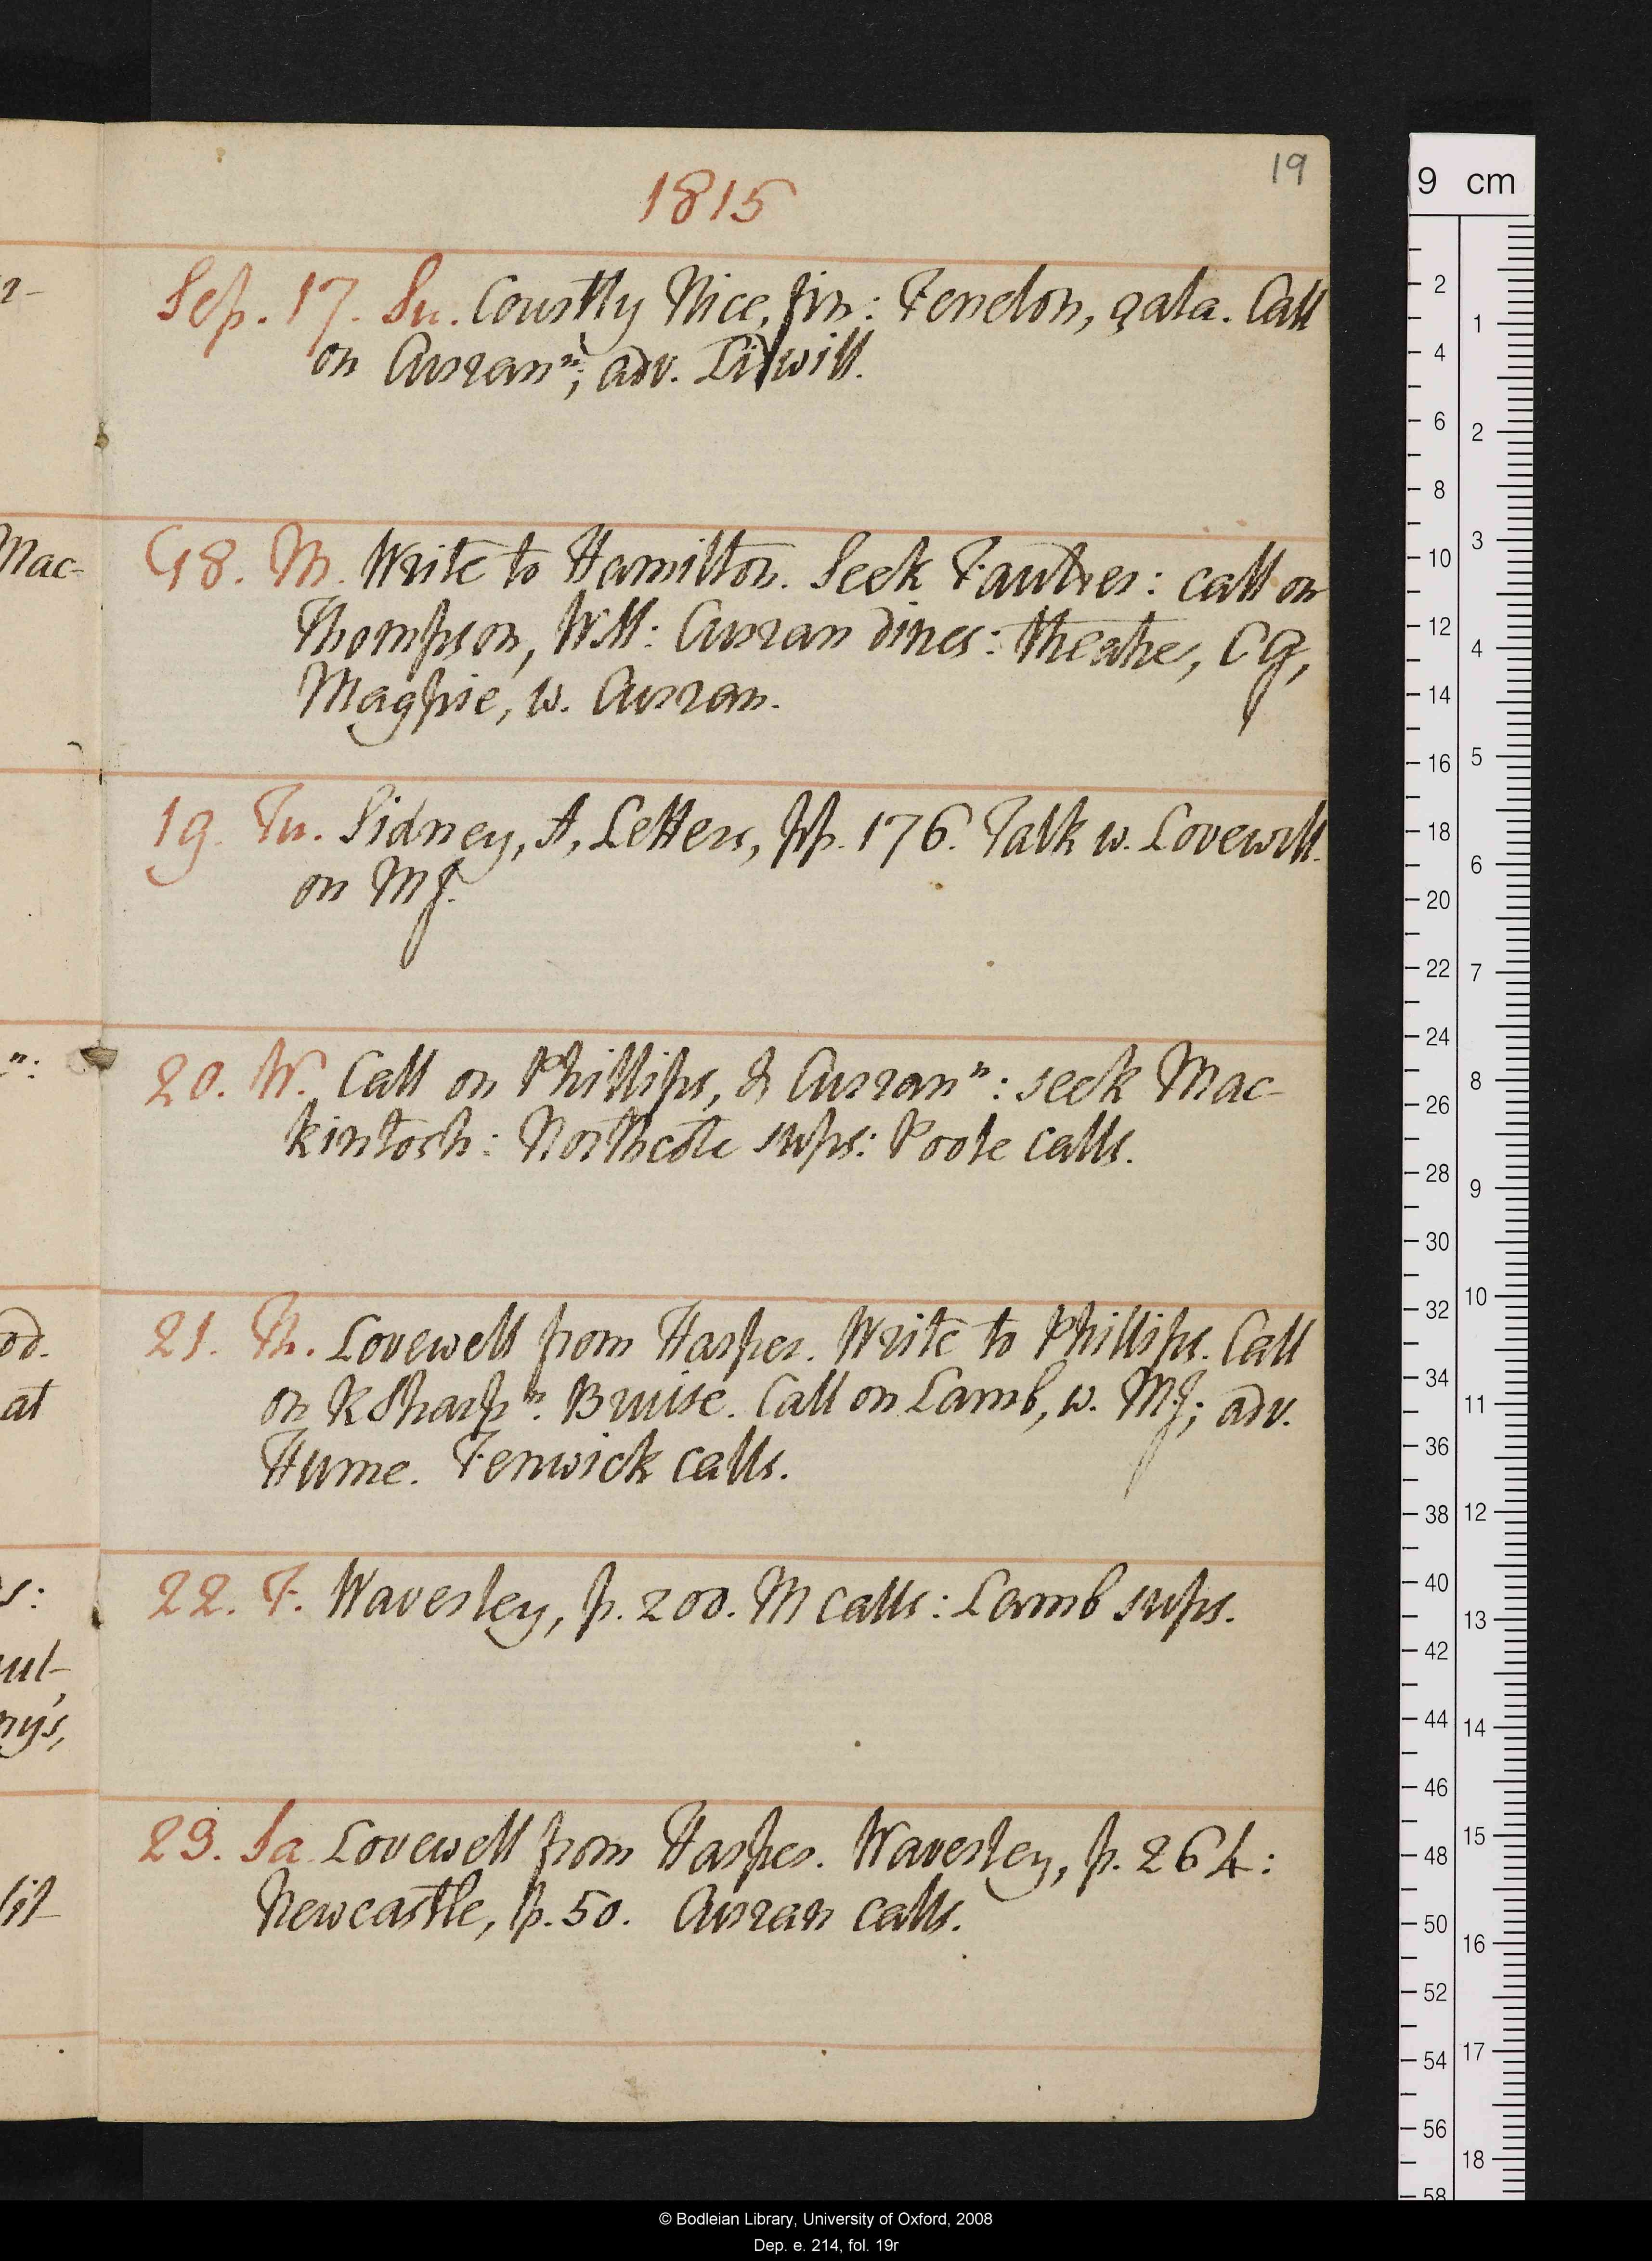 19
1815
Sep. 17. Su. Courtly Nice, fin: Fenelon, çala. Call
on Curran n; adv. Lidwill.
Mac-
G 18. M. Write to Hamilton. Seek Fautres: call on
Thompson, WM: Curran dines: theatre, CG,
Magpie, w. Curran.
19. Tu. Sidney, A, Letters, pp. 176. Talk w. Lovewell
on MJ.
n:
20. W. Call on Phillips, & Curran n: seek Mac-
kintosh: Northcote sups: Poole calls.
od.
21. Th. Lovewell from Harper. Write to Phillips. Call
at
on R Sharp n. Bruise. Call on Lamb, w. MJ; adv.
Hume. Fenwick calls.
s:
22. F. Waverley, p. 200. M calls: Lamb sups.
ul-
ny's,
23. Sa Lovewell from Harper. Waverley, p. 264:
Newcastle, p. 50. Curran calls.
9 cm
2
4
6
8
10
12
14
16
18
20
22
24
26
28
30
32
34
36
38
40
42
44
46
48
50
52
54
56
58
1
2
3
4
5
6
7
8
9
10
11
12
13
14
15
16
17
18
© Bodleian Library, University of Oxford, 2008
Dep. e. 214, fol. 19r